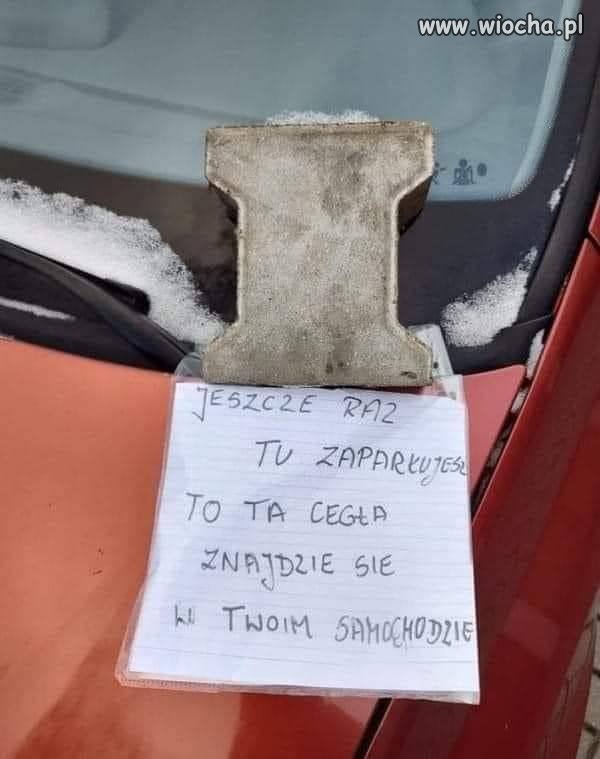 www.wiocha.pl
JESZCZE RAZ
TU ZAPARKUJESZ
TO TA CEGŁA
ZNAJDZIE SIE
W TWOIM SAMOCHODZIE